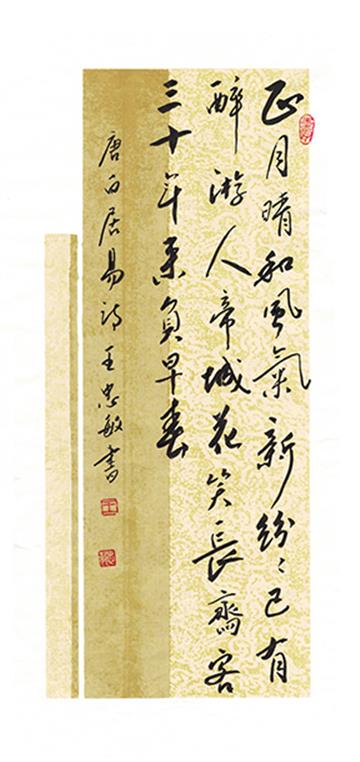 正月晴和風氣新紛〻已有
醉游人帝城花笑長齋客
三十年来負早春
唐白居易詩王忠敏書